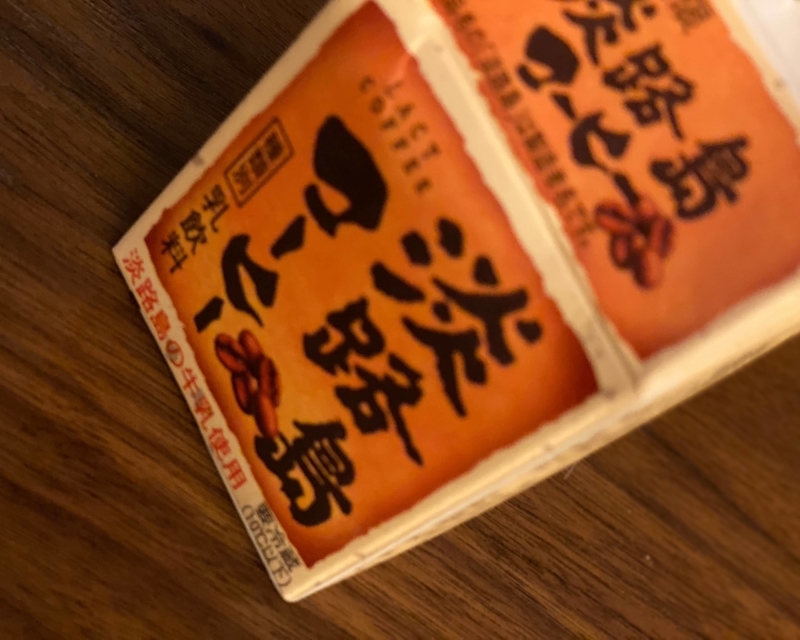 LACT
COFFEE
淡路島
コーヒー
種類別
乳飲料
淡路島の牛乳使用
要冷蔵
(10℃以下)
淡路島
コーヒー